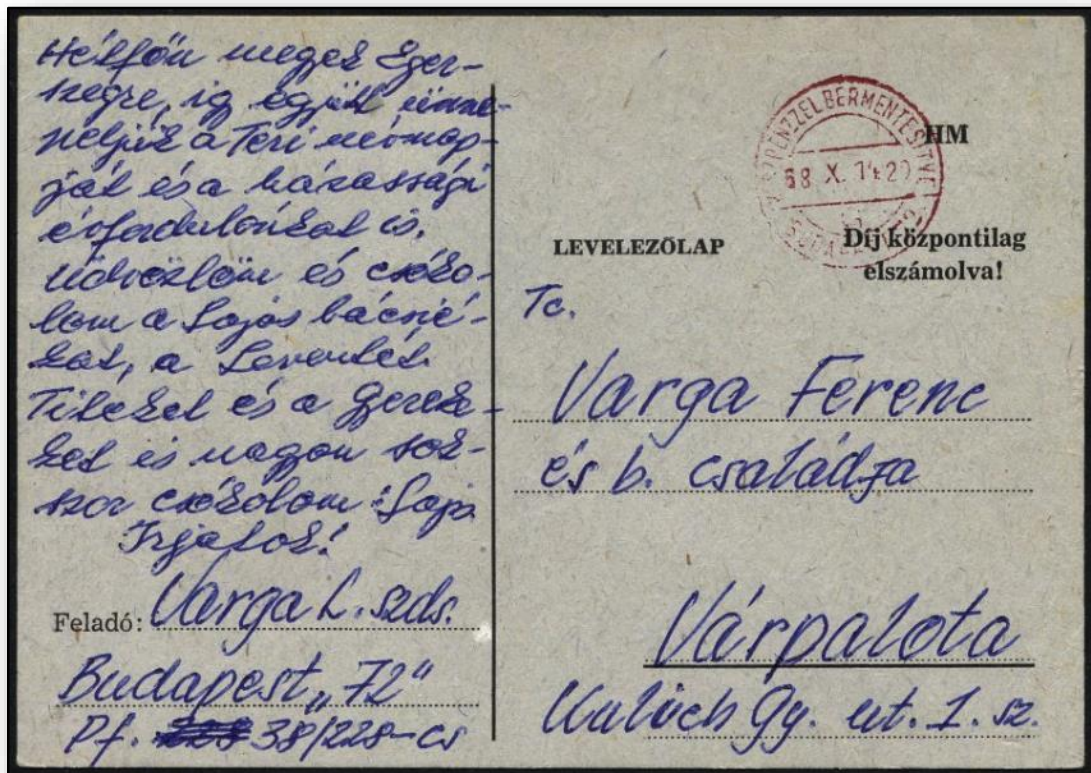 Hétfőn megyek Eger-
szegre, így együtt ünne-
peljük a Teri névnap-
ját és a házassági
évfordulónkat is.
Üdvözlöm és csóko-
lom a Lajos bácsié-
kat, a Leventét
Titeket és a gyerek-
ket is nagyon sok-
szor csókolom: Lajos
Írjatok!
Feladó: Varga L. szds.
Budapest „72"
Pf. 38/228-cs
KÉSZPÉNZZEL BÉRMENTESÍTVE
68 X. 14 20
HM
LEVELEZŐLAP
Díj központilag
elszámolva!
Tc.
Varga Ferenc
és b. családja
Várpalota
Gy. ut. 1. sz.